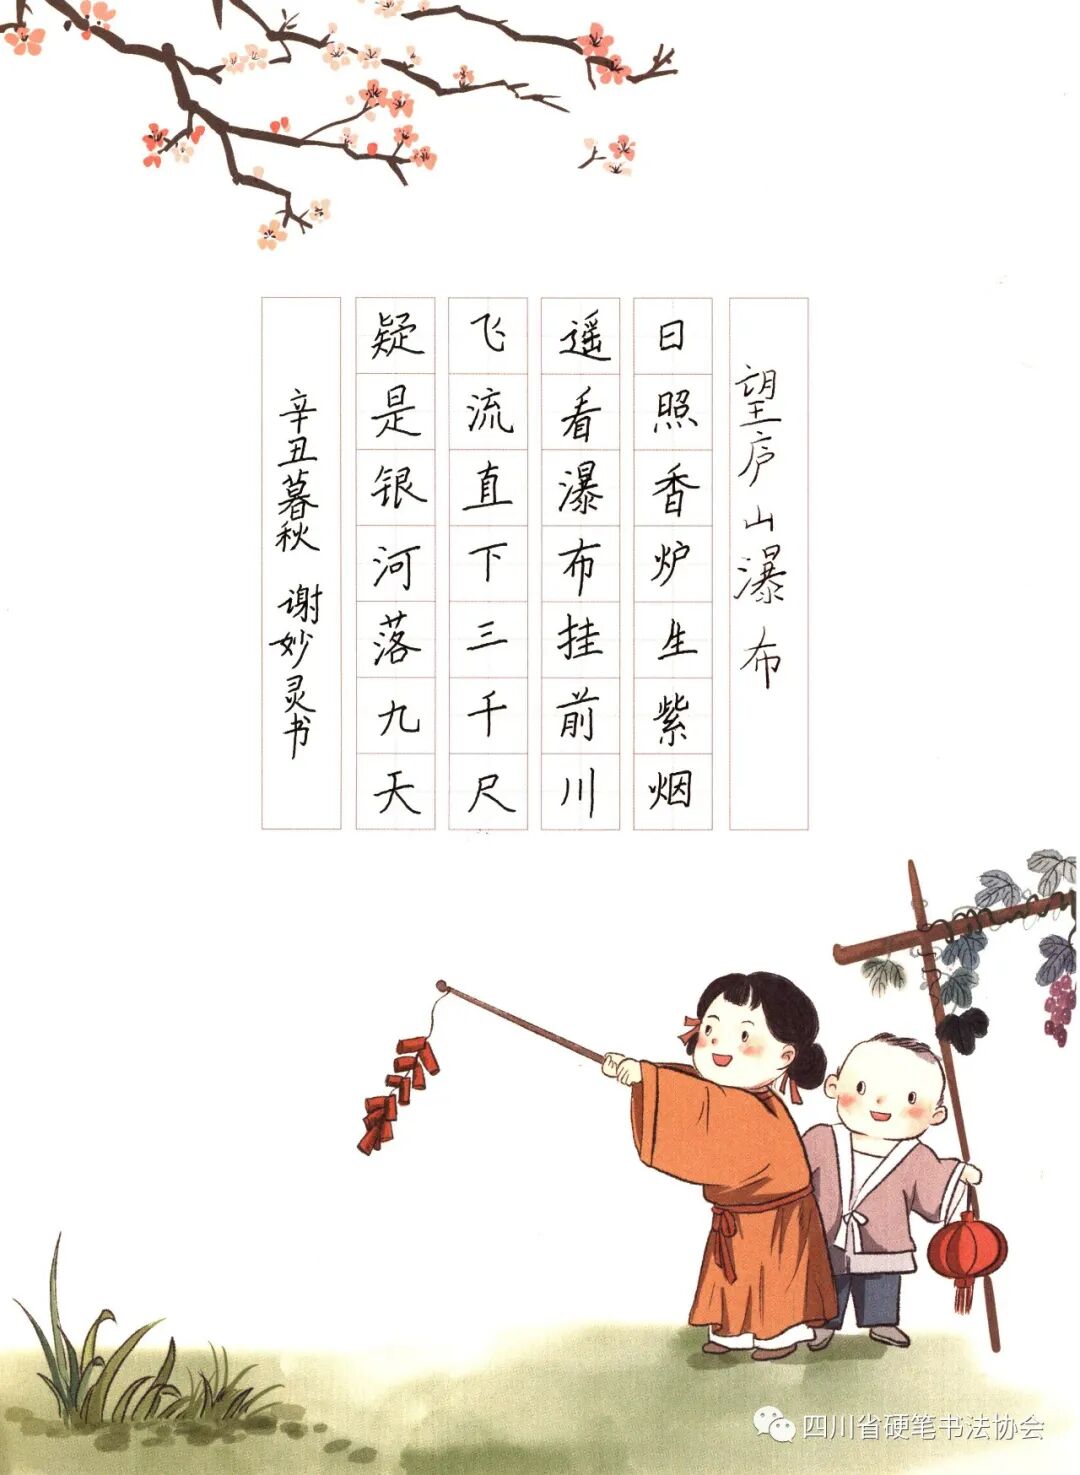 望庐山瀑布
日照香炉生紫烟
遥看瀑布挂前川
飞流直下三千尺
疑是银河落九天
辛丑暮秋 谢妙灵书
四川省硬笔书法协会